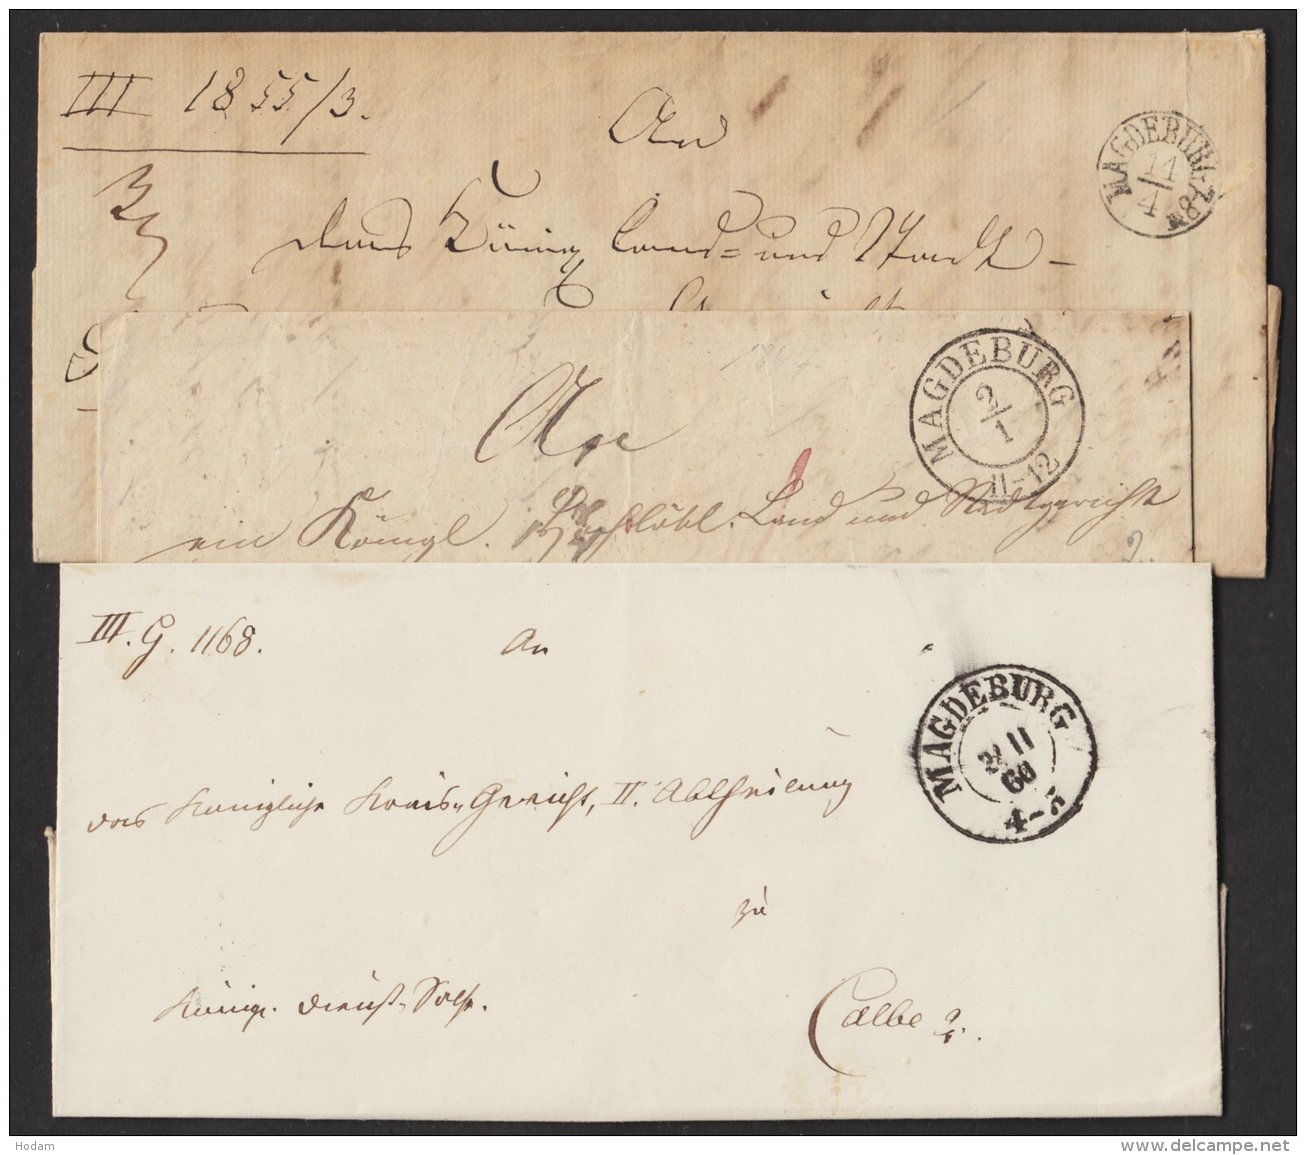 III 1855/3.
An
MAGDEBURG
14/4
das Königl Land= und Stadt-
An
MAGDEBURG
2/1
11-12
ein Königl. Hochlöbl. Land und Stadtgericht
III. G. 1168.
An
MAGDEBURG
11
60
4-5
das Königliche Kreis-Gericht, II. Abtheilung
zu
Königl. Dienst-Sache.
Calbe a/
Hodam
www.delcampe.net